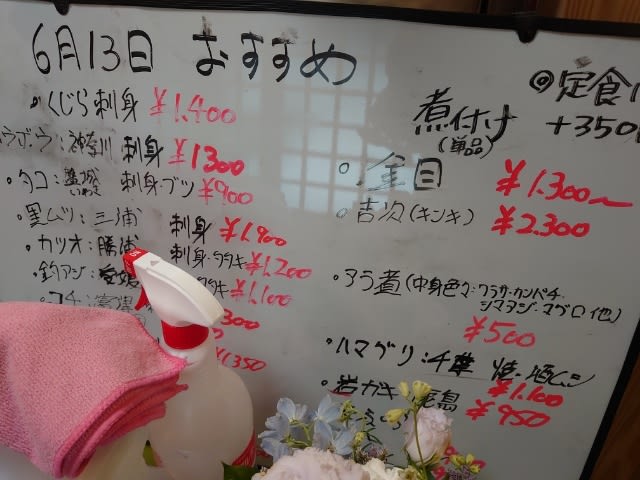 6月13日 おすすめ
・くじら刺身 ¥1.400
ウボウ:神奈川 刺身 ¥1300
・タコ: いわき 刺身・ブツ ¥900
・黒ムツ:三浦 刺身 ¥1,900
・カツオ:勝浦 刺身・タタキ ¥1,200
・釣アジ:愛媛 タキ ¥1,100
・コチ: 300
¥1350
◎定食
煮付け +350
(単品)
・金目 ¥1.300~
・吉次(キンキ) ¥2.300
・アラ煮(中身色々:ワラサ・カンパチ・
シマアジ・マグロ他)
¥500
・ハマグリ:千葉 焼・酒むし
¥1,100
・岩ガキ: 島 ¥950